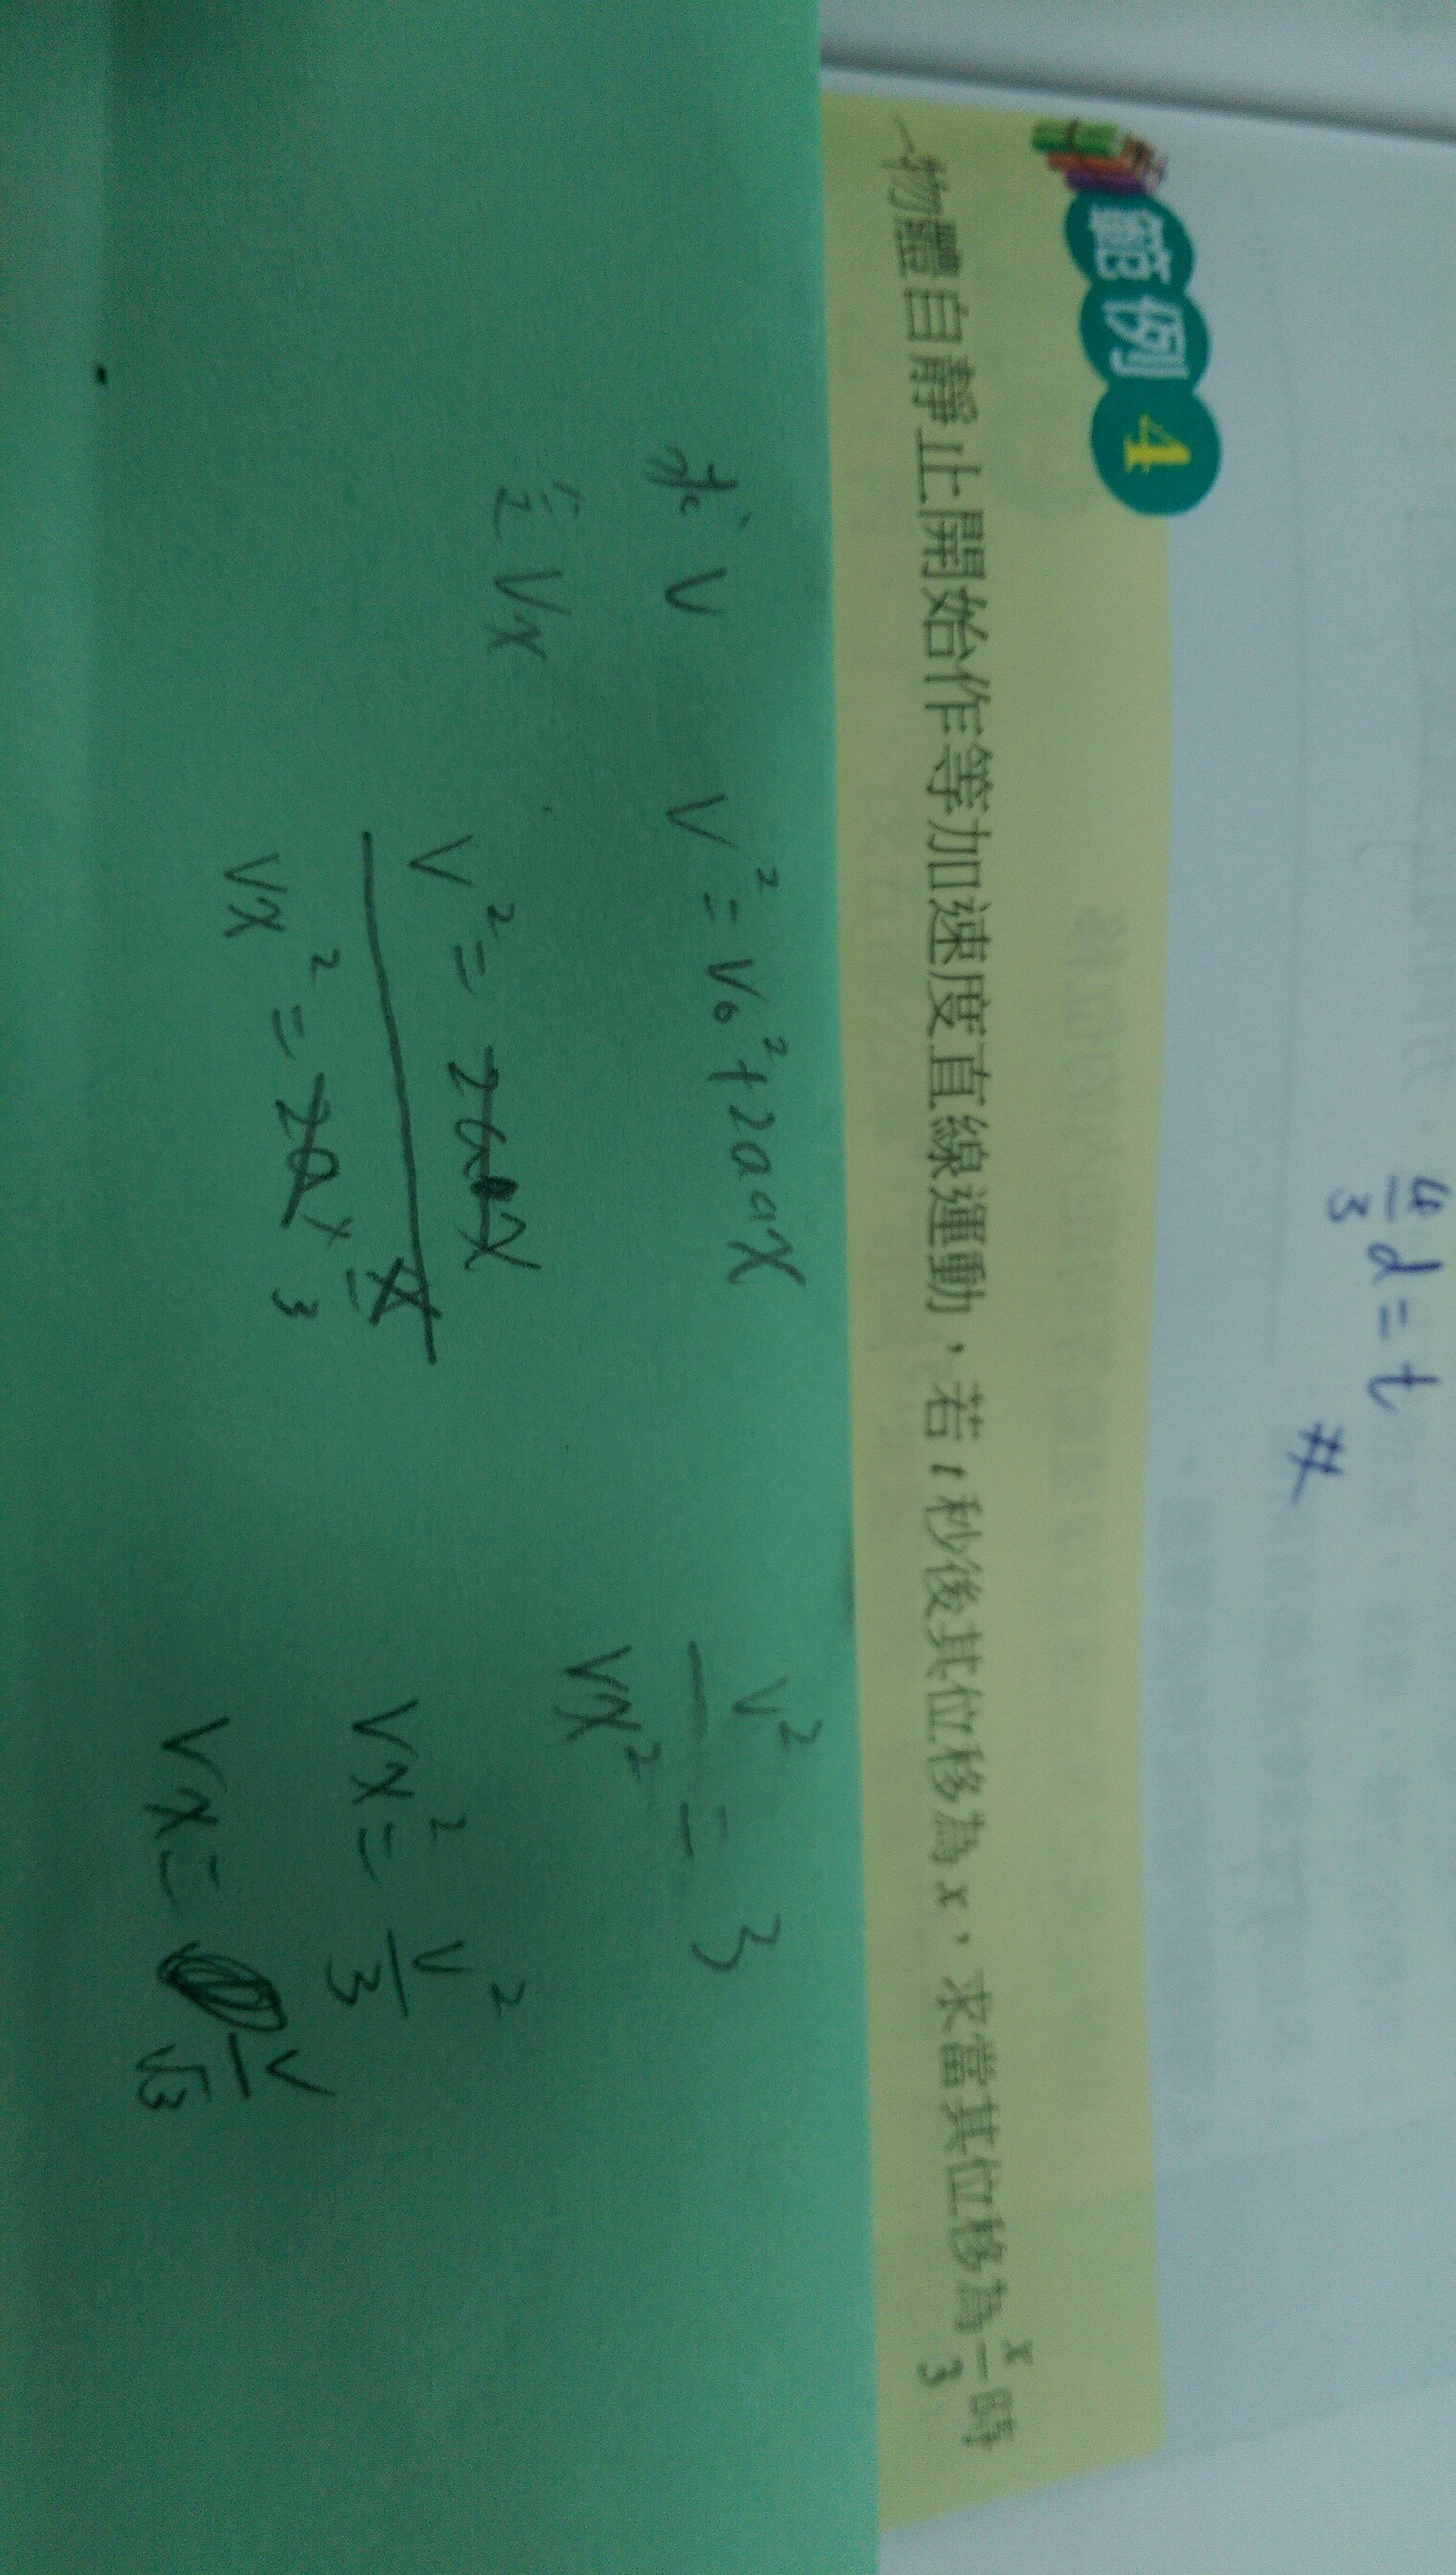 4/3 d = t
#
範例 4
一物體自靜止開始作等加速度直線運動，若 t 秒後其位移為 x，求當其位移為 x/3 時
求 V
V² = V₀² + 2aax
Vx
V² = 2ax
Vx² = 2a × x/3
V²/Vx² = 3
Vx² = V²/3
Vx = V/√3